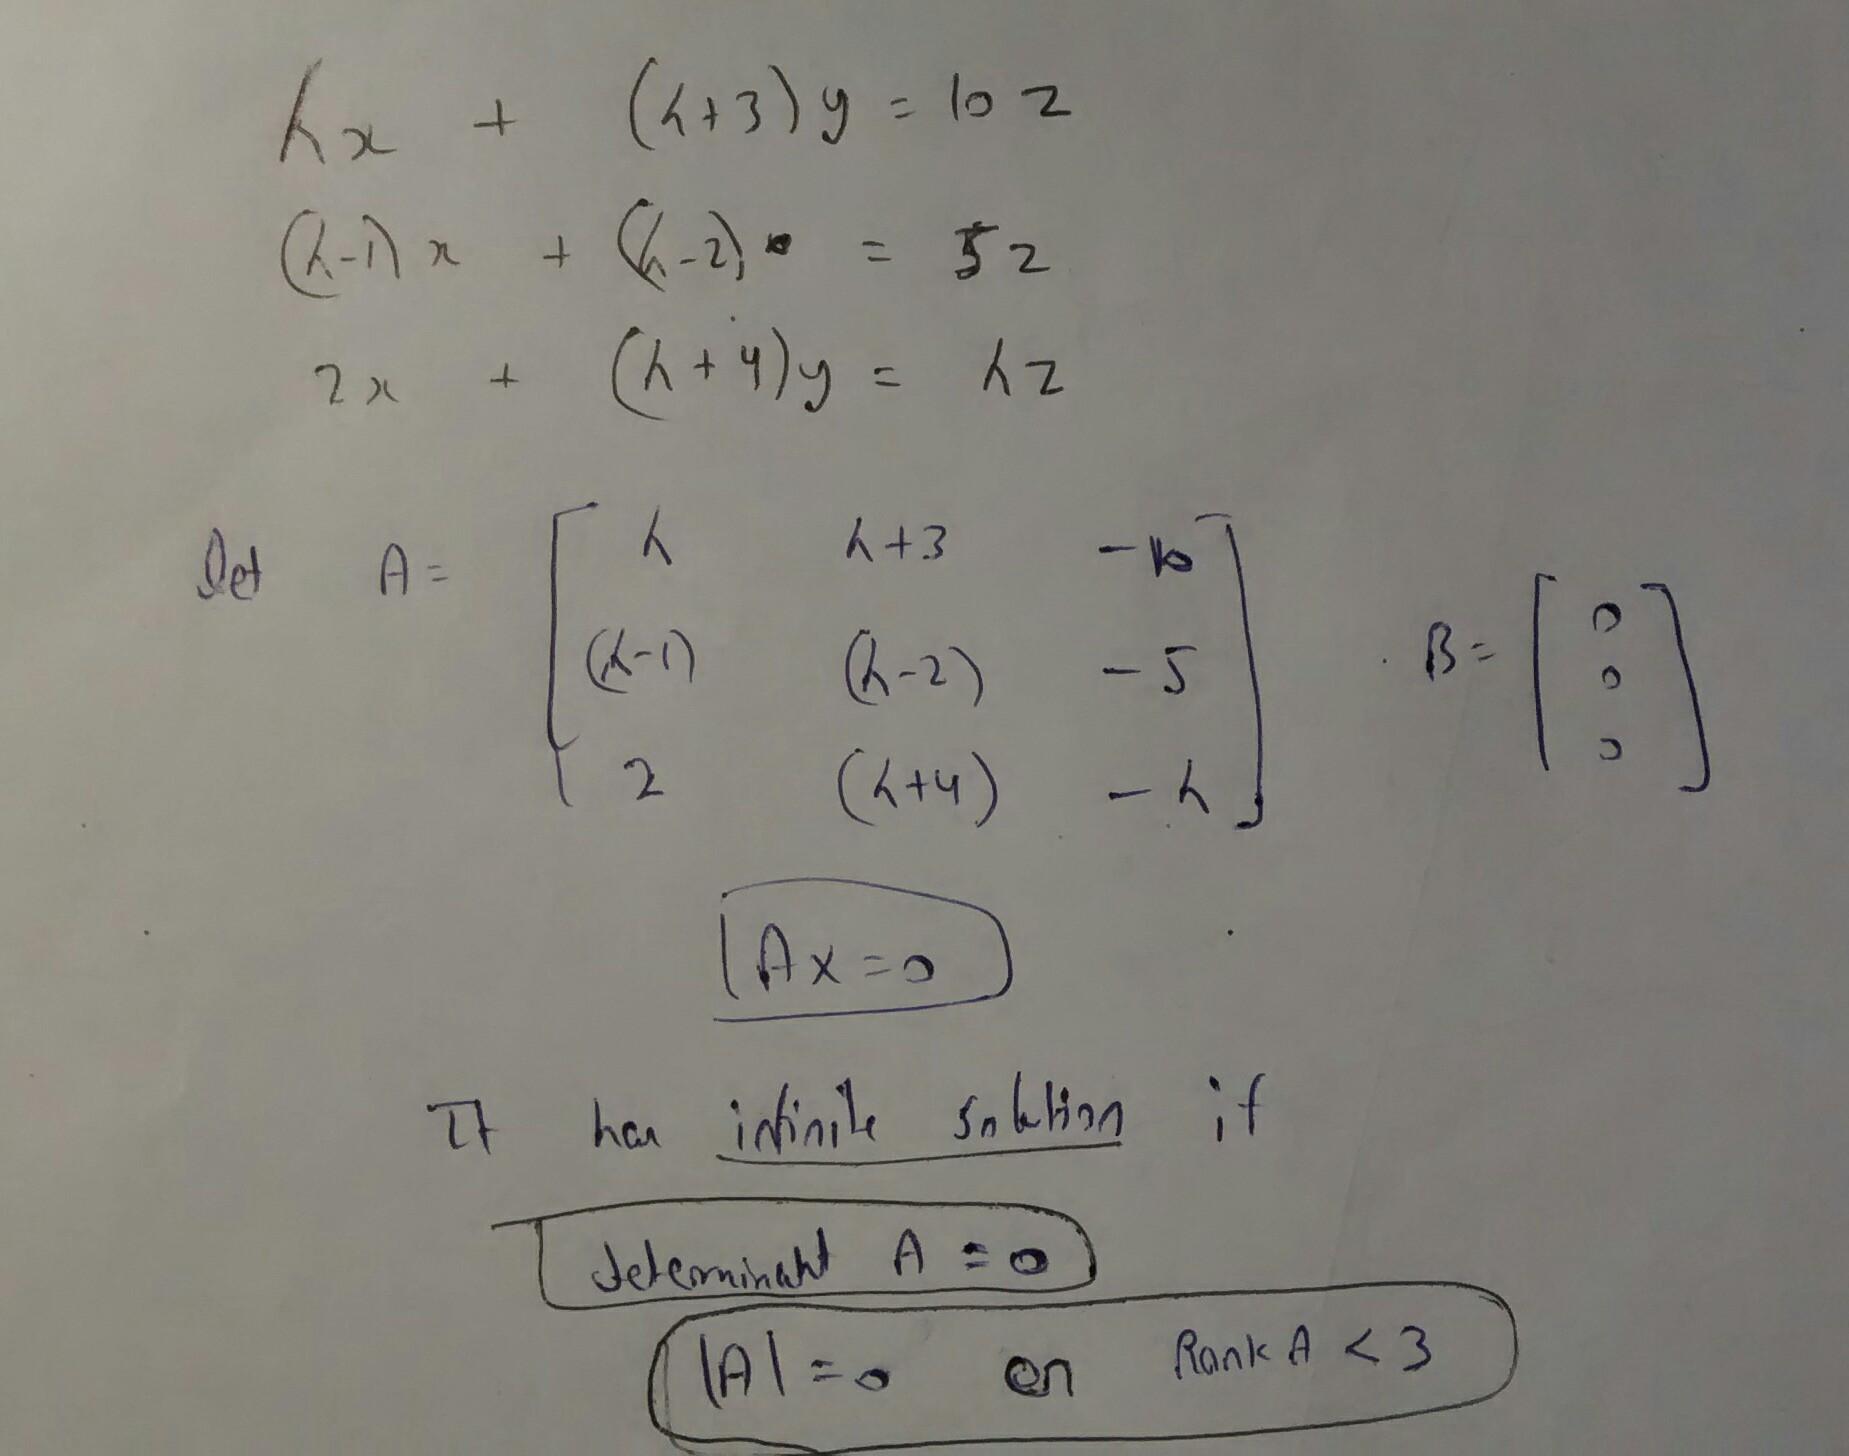 hx + (h+3)y = 10z
(h-1)x + (h-2) = 5z
2x + (h+4)y = hz
let A = [ h h+3 -10
(h-1) (h-2) -5
2 (h+4) -h ] B = [ 0 0 0 ]
Ax = 0
It has infinite solution if
determinant A = 0
|A| = 0 or Rank A < 3